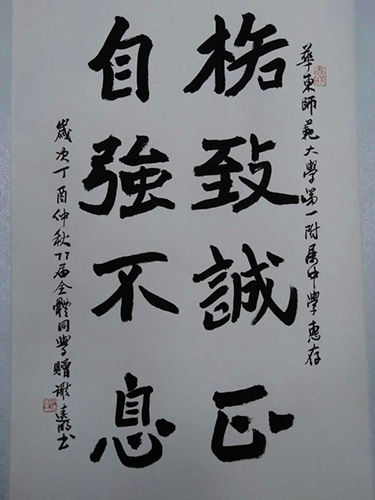 華東師範大學第一附属中學惠存
格致誠正
自強不息
歲次丁酉仲秋77届全體同學贈 謝